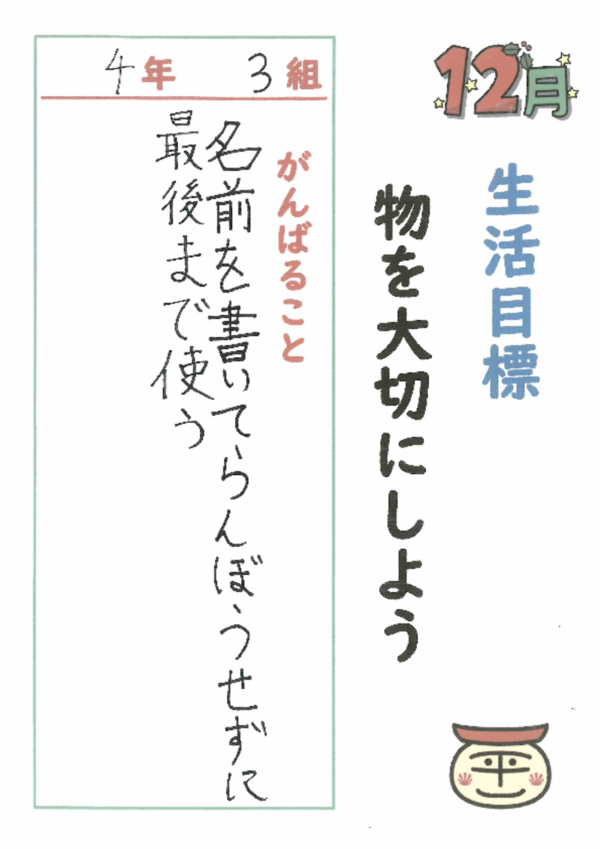 12月
生活目標
物を大切にしよう
4年 3組
がんばること
名前を書いてらんぼうせずに
最後まで使う